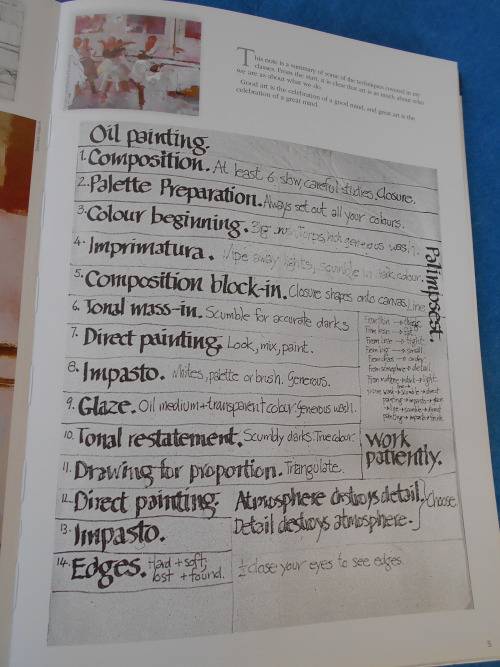 This note is a summary of some of the techniques covered in my
classes. From the start, it is clear that art is as much about who
we are as about what we do.
Good art is the celebration of a good mind, and great art is the
celebration of a great mind.
Oil painting.
1. Composition. At least 6 slow, careful studies. Closure.
2. Palette Preparation. Always set out all your colours.
3. Colour beginning. Big wash.
4. Imprimatura. Wipe away lights, scumble in dark colour.
5. Composition block-in. Closure shapes onto canvas. Line
6. Tonal mass-in. Scumble for accurate darks
7. Direct painting. Look, mix, paint.
8. Impasto. Whites, palette or brush. Generous.
9. Glaze. Oil medium + transparent colour. Generous wash.
10. Tonal restatement. Scumbly darks. True colour.
11. Drawing for proportion. Triangulate.
12. Direct painting.
13. Impasto.
14. Edges. Hard + soft,
lost + found.
Palimpsest.
From thin → thick.
From lean → fat.
From loose → tight.
From big → small.
From atmosphere → detail.
Work
patiently.
Atmosphere destroys detail.
Detail destroys atmosphere.
Choose
½ close your eyes to see edges.
5